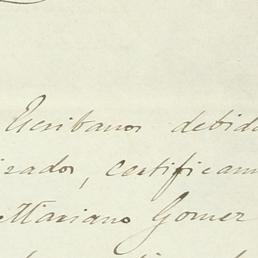 Escribanos debid
izados, certificam
Mariano Gomez